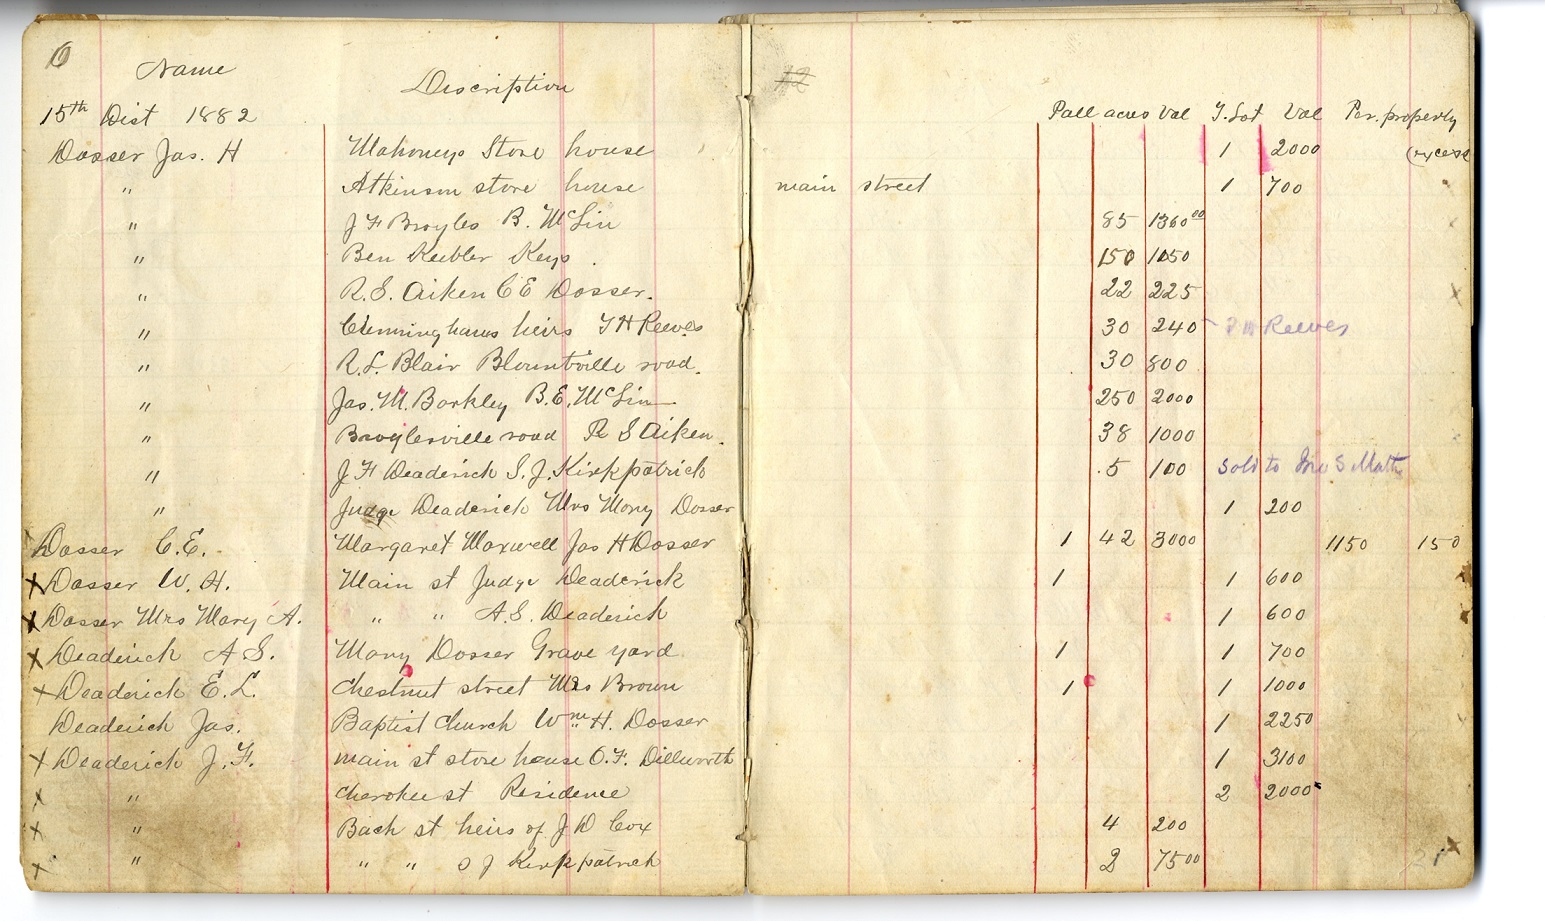 10
Name Discription 12
15th Dist 1882 Pall acres Val T. Lot Val Per. property
Dosser Jas. H Mahoneys Store house 1 2000 (excess
" Atkinson store house main street 1 700
" J F Broyles B. McLin 85 1360 00
" Ben Keebler Keys 150 1050
" R. S. Aiken C E Dosser. 22 225
" Cunninghams heirs T H Reeves 30 240 Reeves
" R. L. Blair Blountville road. 30 800
" Jas. M. Barkley B. E. McLin 250 2000
" Broylesville road R S Aiken. 38 1000
" J F Deaderick S. J. Kirkpatrick .5 100 Sold to Jno S Math
" Judge Deaderick Mrs Mary Dosser 1 200
Dosser C. E. Margaret Maxwell Jas H Dosser 1 42 3000 1150 150
x Dosser W. H. Main st Judge Deaderick 1 1 600
x Dosser Mrs Mary A. " " A. S. Deaderick 1 600
x Deaderick A S. Mary Dosser Grave yard 1 1 700
x Deaderick E. L. Chestnut street Mrs Brown 1 1 1000
Deaderick Jas. Baptist Church Wm H. Dosser 1 2250
x Deaderick J. F. main st store house O. F. Dillworth 1 3100
x " Cherokee st Residence 2 2000
x " Back st heirs of J D Cox 4 200
x " " " S J Kirkpatrick 2 75 00